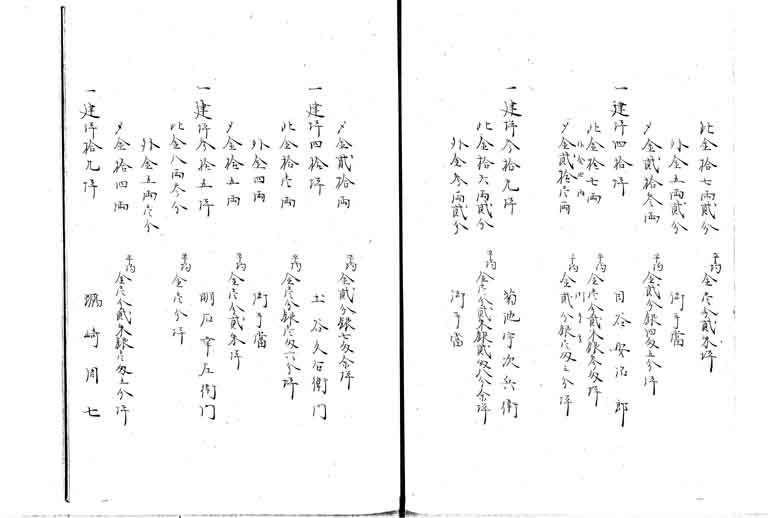 此金拾七両貳分　平均金壱分貳朱坪
外金五両貳分　御手當
〆金貳拾三両　平均金貳分銀四匁五分坪
一建坪四拾坪　目谷安治郎
此金拾七両　平均金壱分貳朱銀三匁坪
外金四両　御手當
〆金貳拾壱両　平均金貳分銀壱匁五分坪
一建坪三拾九坪　菊池宇次兵衛
此金拾六両貳分　平均金壱分貳朱銀貳匁八分余坪
外金三両貳分　御手當
〆金貳拾両　平均金貳分銀七分余坪
一建坪四拾坪　土谷久右衛門
此金拾壱両　平均金壱分銀壱匁六分坪
外金四両　御手當
〆金拾五両　平均金壱分貳朱坪
一建坪三拾五坪　明石幸左衛門
此金八両三分　平均金壱分坪
外金五両壱分
〆金拾四両　平均金壱分貳朱銀壱匁五分坪
一建坪拾九坪　嶋崎周七